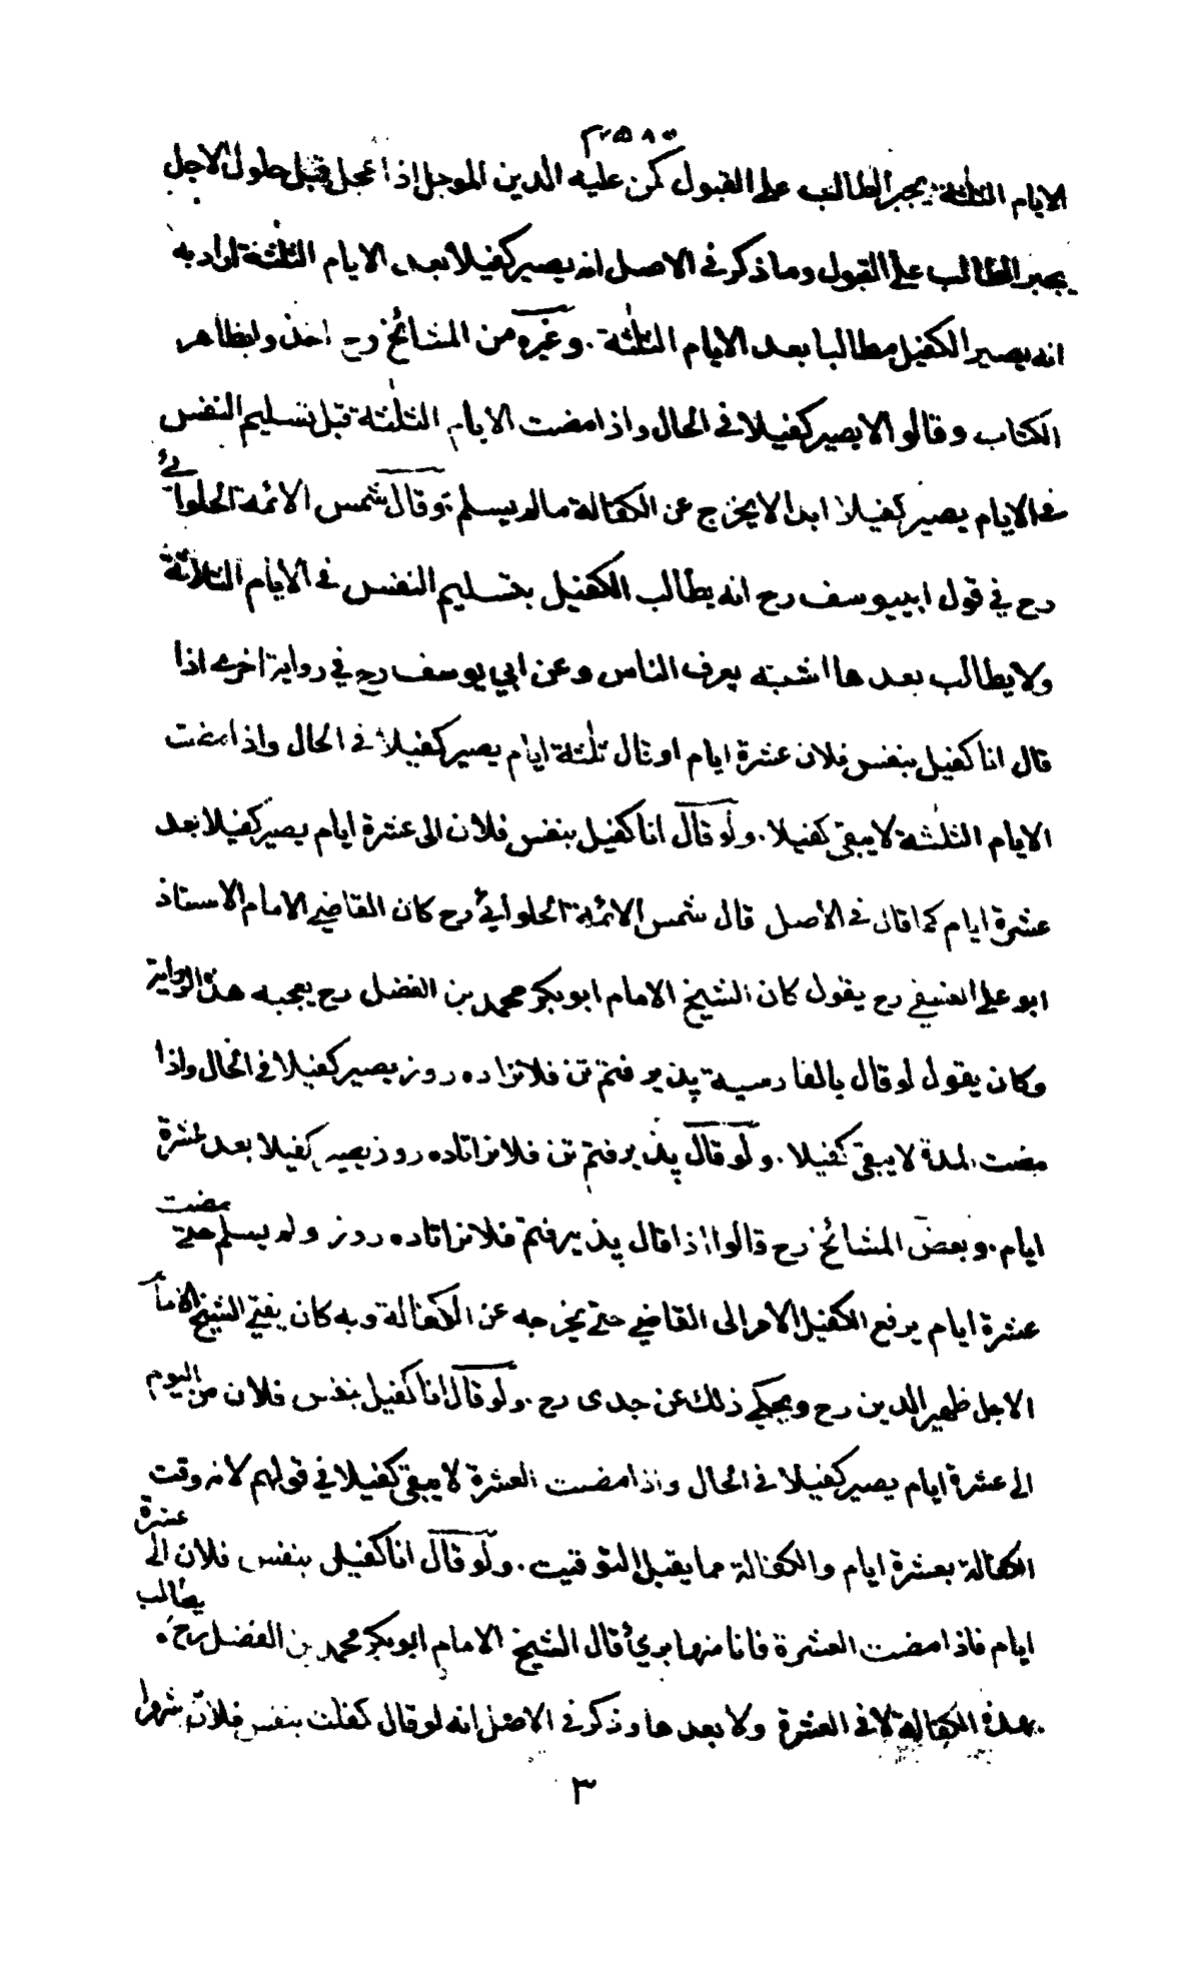 الايام الثلثة يجبر الطالب على القبول كمن عليه الدين الموجل اذا عجل قبل حلول الاجل
يجبر الطالب على القبول وما ذكر في الاصل انه يصير كفيلا بعد الايام الثلثة اراد به
انه يصير الكفيل مطالبا بعد الايام الثلثة . وغيره من المشائخ رح اخذوا بظاهر
الكتاب وقالوا لا يصير كفيلا في الحال واذا مضت الايام الثلثة قبل تسليم النفس
في الايام يصير كفيلا ابدا لا يخرج عن الكفالة ما لم يسلم . وقال شمس الائمة الحلوائي
رح في قول ابي يوسف رح انه يطالب الكفيل بتسليم النفس في الايام الثلاثة
ولا يطالب بعدها اشبه بعرف الناس وعن ابي يوسف رح في رواية اخرى اذا
قال انا كفيل بنفس فلان عشرة ايام او قال ثلثة ايام يصير كفيلا في الحال واذا مضت
الايام الثلثة لا يبقى كفيلا . ولو قال انا كفيل بنفس فلان الى عشرة ايام يصير كفيلا بعد
عشرة ايام كما قال في الاصل قال شمس الائمة الحلوائي رح كان القاضي الامام الاستاذ
ابو علي النسفي رح يقول كان الشيخ الامام ابو بكر محمد بن الفضل رح يعجبه هذه الرواية
وكان يقول لو قال بالفارسية پذيرفتم تن فلانرا ده روز يصير كفيلا في الحال واذا
مضت المدة لا يبقى كفيلا . ولو قال پذيرفتم تن فلانرا تاده روز يصير كفيلا بعد عشرة
ايام . وبعض المشائخ رح قالوا اذا قال پذيرفتم فلانرا تاده روز ولم يسلم حتى مضت
عشرة ايام يرفع الكفيل الامر الى القاضي حتى يخرجه عن الكفالة وبه كان يفتي الشيخ الامام
الاجل ظهير الدين رح ويحكي ذلك عن جدى رح . ولو قال انا كفيل بنفس فلان من اليوم
الى عشرة ايام يصير كفيلا في الحال واذا مضت العشرة لا يبقى كفيلا في قولهم لانه وقت
الكفالة بعشرة ايام والكفالة مما يقبل التوقيت . ولو قال انا كفيل بنفس فلان الى عشرة
ايام فاذا مضت العشرة فانا منها برئ قال الشيخ الامام ابو بكر محمد بن الفضل رح لا يطالب
بهذه الكفالة لا في العشرة ولا بعدها وذكر في الاصل انه لو قال كفلت بنفس فلان شهرا
٣